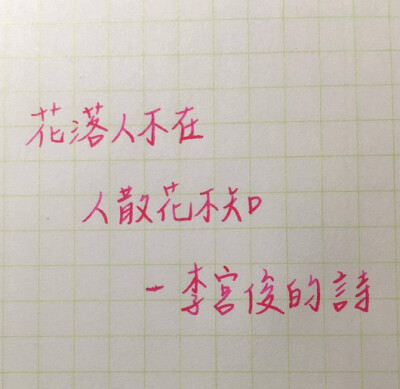 花落人不在
人散花不知
-李宮俊的詩